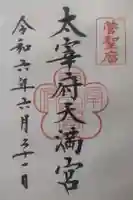 菅聖廟
太宰府天満宮
令和六年六月 日